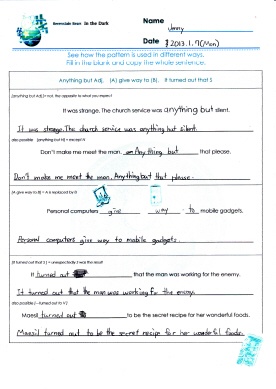 Reversible Brain In the Dark
Name Jenny
Date 2013.1.7(Mon)
See how the pattern is used in different ways.
Fill in the blank and copy the whole sentence.
Anything but Adj. (A) give way to (B). It turned out that S
[anything but Adj] = not, the opposite to what you expect
It was strange. The church service was anything but silent.
It was strange. The church service was anything but silent.
also possible [anything but N] = except N
Don't make me meet the man. Anything but that please.
Don't make me meet the man. Anything but that please.
[A give way to B] = A is replaced by B
Personal computers give way to mobile gadgets.
Personal computers give way to mobile gadgets.
[It turned out that S] = unexpectedly S was the result
It turned out that the man was working for the enemy.
It turned out that the man was working for the enemy.
also possible [~turned out to V]
Maesil turned out to be the secret recipe for her wonderful foods.
Maesil turned out to be the secret recipe for her wonderful foods.